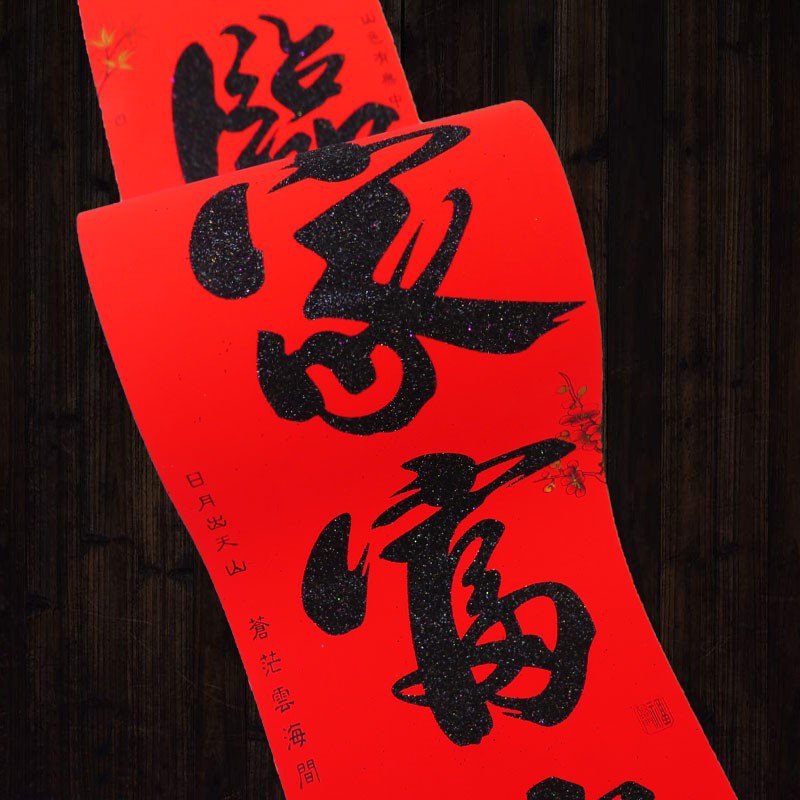 臨
山色有無中
家富
日月出天山
蒼茫雲海間